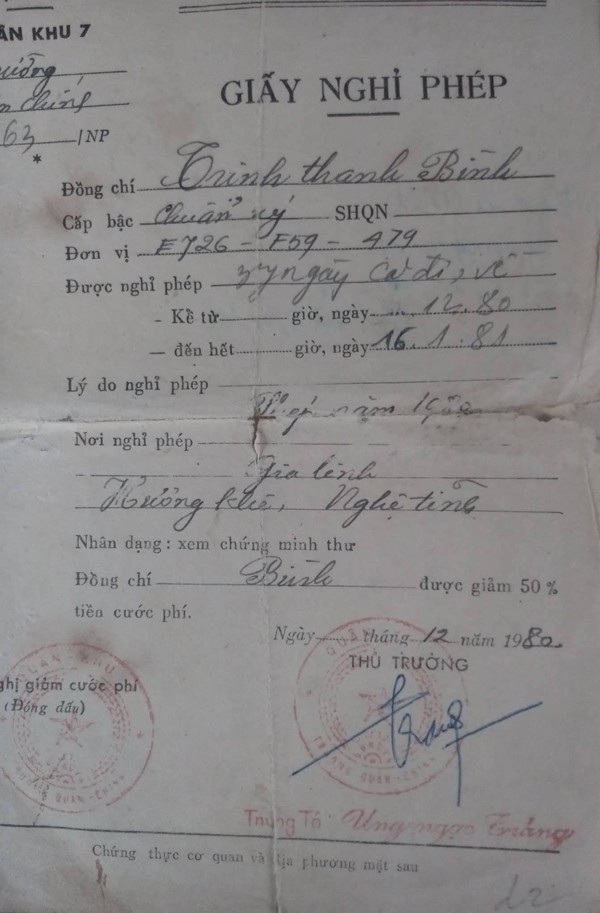 ÂN KHU 7
GIẤY NGHỈ PHÉP
63 /NP
*
Đồng chí Trịnh thanh Bình
Cấp bậc chuẩn úy SHQN
Đơn vị E726 - F59 - 479
Được nghỉ phép ngày cả đi, về
- Kể từ giờ, ngày 12.80
— đến hết giờ, ngày 16.1.81
Lý do nghỉ phép
năm
Nơi nghỉ phép
Gia
Hương khê, Nghệ tĩnh
Nhân dạng : xem chứng minh thư
Đồng chí Bình được giảm 50%
tiền cước phí.
Ngày tháng 12 năm 1980
THỦ TRƯỞNG
ghị giảm cước phí
(Đóng dấu)
Trung Tá Ung ngọc
Chứng thực cơ quan và địa phương mặt sau